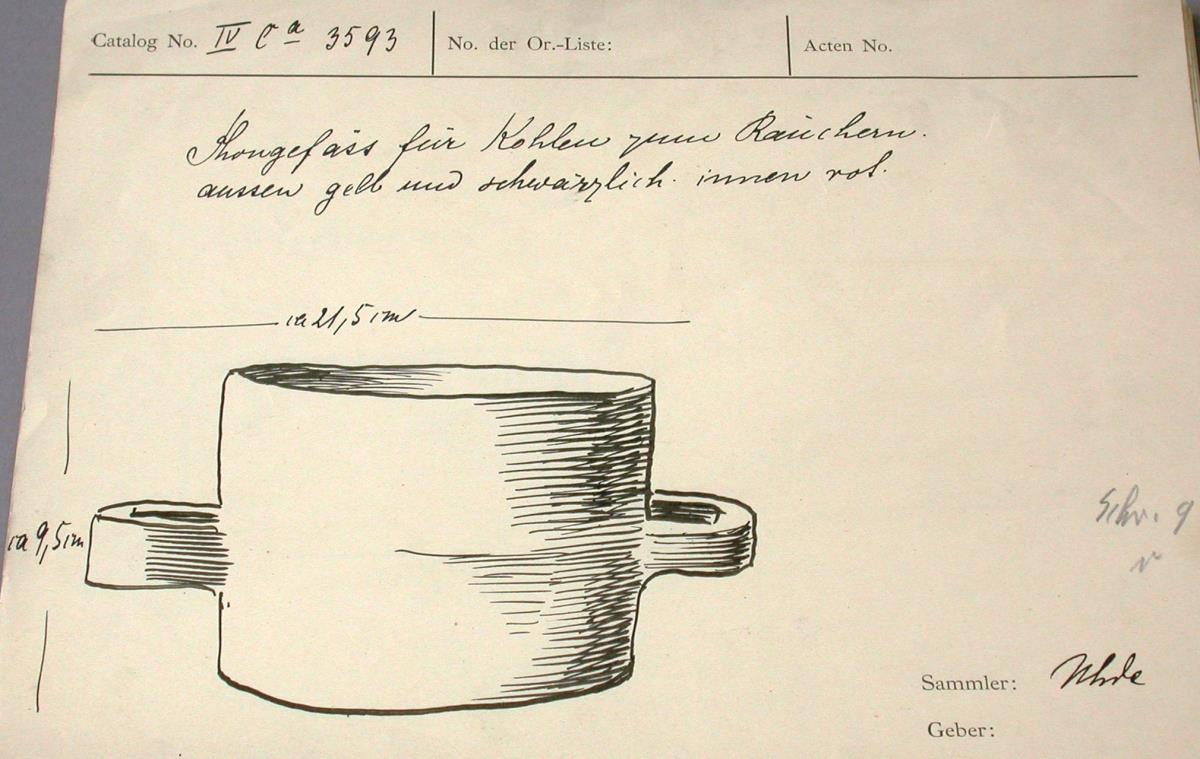 Catalog No. IV Ca 3593 No. der Or.-Liste: Acten No.
Thongefäss für Kohlen zum Räuchern.
aussen gelb und schwärzlich. innen rot.
ca 21,5 cm
ca 9,5 cm
Schr. 9
Sammler: Uhde
Geber: